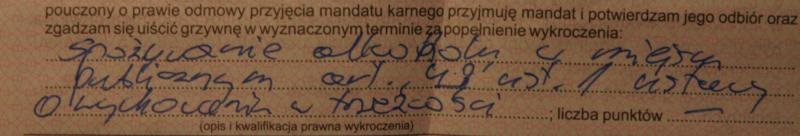 pouczony o prawie odmowy przyjęcia mandatu karnego przyjmuję mandat i potwierdzam jego odbiór oraz
zgadzam się uiścić grzywnę w wyznaczonym terminie za popełnienie wykroczenia:
spożywanie alkoholu w miejscu
publicznym art. 43¹ ust. 1 ustawy
o wychowaniu w trzeźwości ; liczba punktów —
(opis i kwalifikacja prawna wykroczenia)